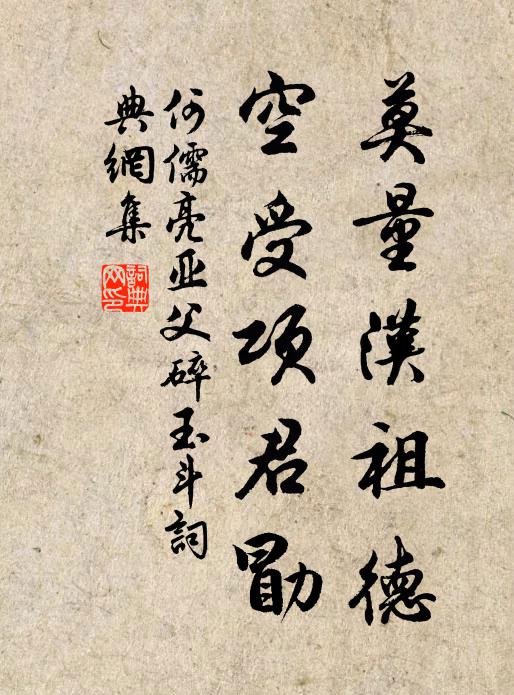 莫量漢祖德
空受項君勖
何儒亮亚父碎玉斗詞
典網集
詞典
网印